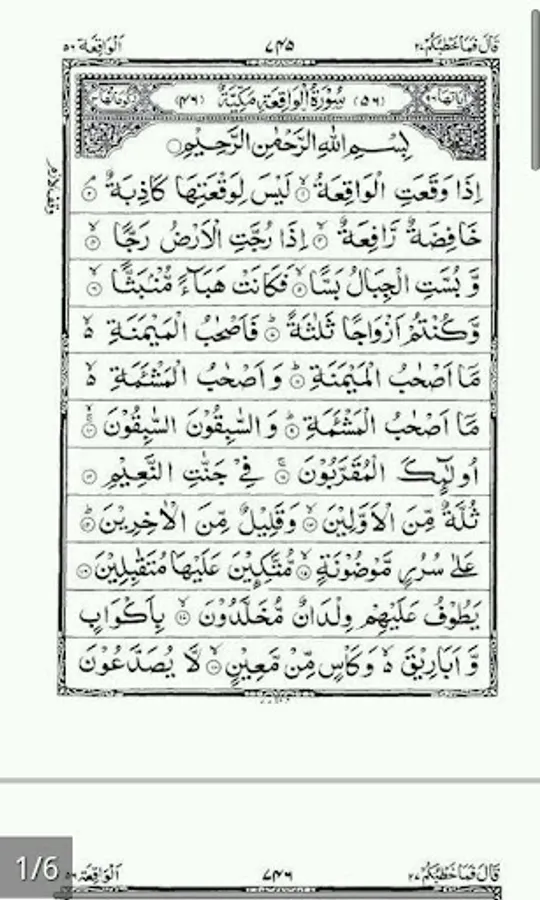 قَالَ فَمَا خَطْبُكُمْ ٢٧ ٧٤٥ اَلْوَاقِعَة ٥٦
اٰيَاتُهَا ٩٦ (٥٦) سُوْرَةُ الْوَاقِعَةِ مَكِّيَّةٌ (٤٦) رُكُوْعَاتُهَا ٣
بِسْمِ اللّٰهِ الرَّحْمٰنِ الرَّحِيْمِ
اِذَا وَقَعَتِ الْوَاقِعَةُ ۝١ لَيْسَ لِوَقْعَتِهَا كَاذِبَةٌ ۝٢
خَافِضَةٌ رَّافِعَةٌ ۝٣ اِذَا رُجَّتِ الْاَرْضُ رَجًّا ۝٤
وَّ بُسَّتِ الْجِبَالُ بَسًّا ۝٥ فَكَانَتْ هَبَآءً مُّنْۢبَثًّا ۝٦
وَّكُنْتُمْ اَزْوَاجًا ثَلٰثَةً ۝٧ فَاَصْحٰبُ الْمَيْمَنَةِ ٥
مَآ اَصْحٰبُ الْمَيْمَنَةِ ۝٨ وَ اَصْحٰبُ الْمَشْـَٔمَةِ ٥
مَآ اَصْحٰبُ الْمَشْـَٔمَةِ ۝٩ وَ السّٰبِقُوْنَ السّٰبِقُوْنَ ۝١٠
اُولٰٓئِكَ الْمُقَرَّبُوْنَ ۝١١ فِيْ جَنّٰتِ النَّعِيْمِ ۝١٢
ثُلَّةٌ مِّنَ الْاَوَّلِيْنَ ۝١٣ وَقَلِيْلٌ مِّنَ الْاٰخِرِيْنَ ۝١٤
عَلٰى سُرُرٍ مَّوْضُوْنَةٍ ۝١٥ مُّتَّكِـِٕيْنَ عَلَيْهَا مُتَقٰبِلِيْنَ ۝١٦
يَطُوْفُ عَلَيْهِمْ وِلْدَانٌ مُّخَلَّدُوْنَ ۝١٧ بِاَكْوَابٍ
وَّ اَبَارِيْقَ ٥ وَكَاْسٍ مِّنْ مَّعِيْنٍ ۝١٨ لَّا يُصَدَّعُوْنَ
1/6
قَالَ فَمَا خَطْبُكُمْ ٢٧ ٧٤٦ اَلْوَاقِعَة ٥٦